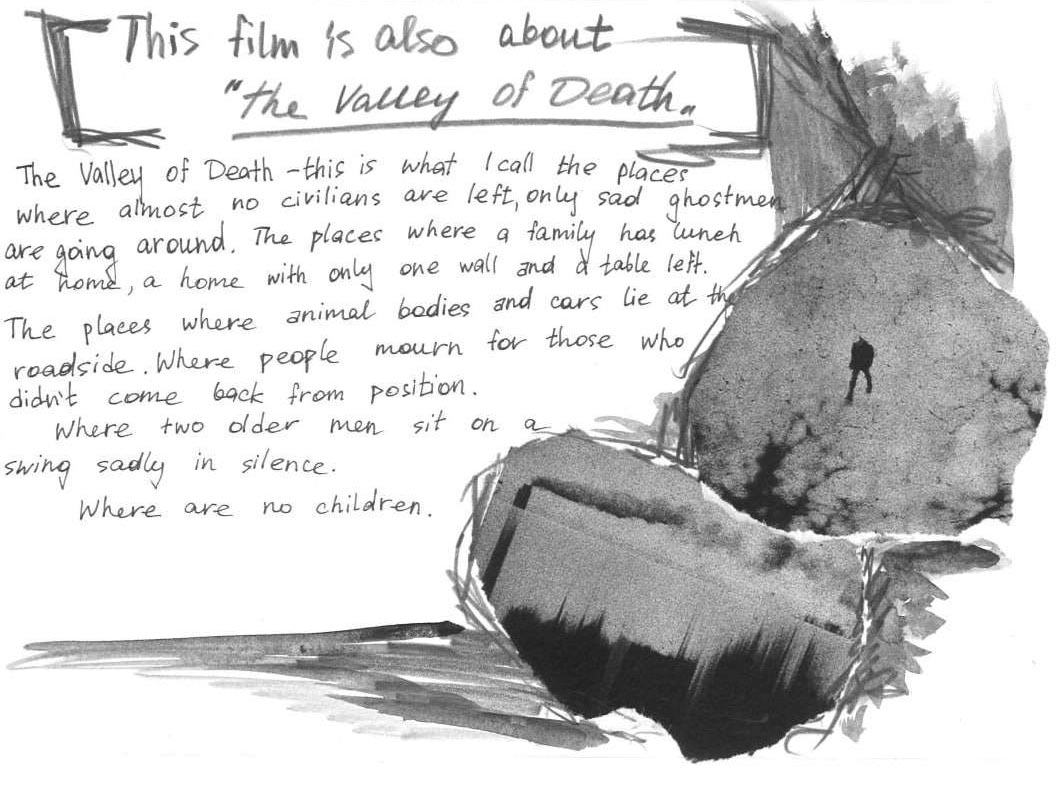 This film is also about
"the Valley of Death"
The Valley of Death - this is what I call the places
where almost no civilians are left, only sad ghostmen
are going around. The places where a family has lunch
at home, a home with only one wall and a table left.
The places where animal bodies and cars lie at the
roadside. Where people mourn for those who
didn't come back from position.
Where two older men sit on a
swing sadly in silence.
Where are no children.